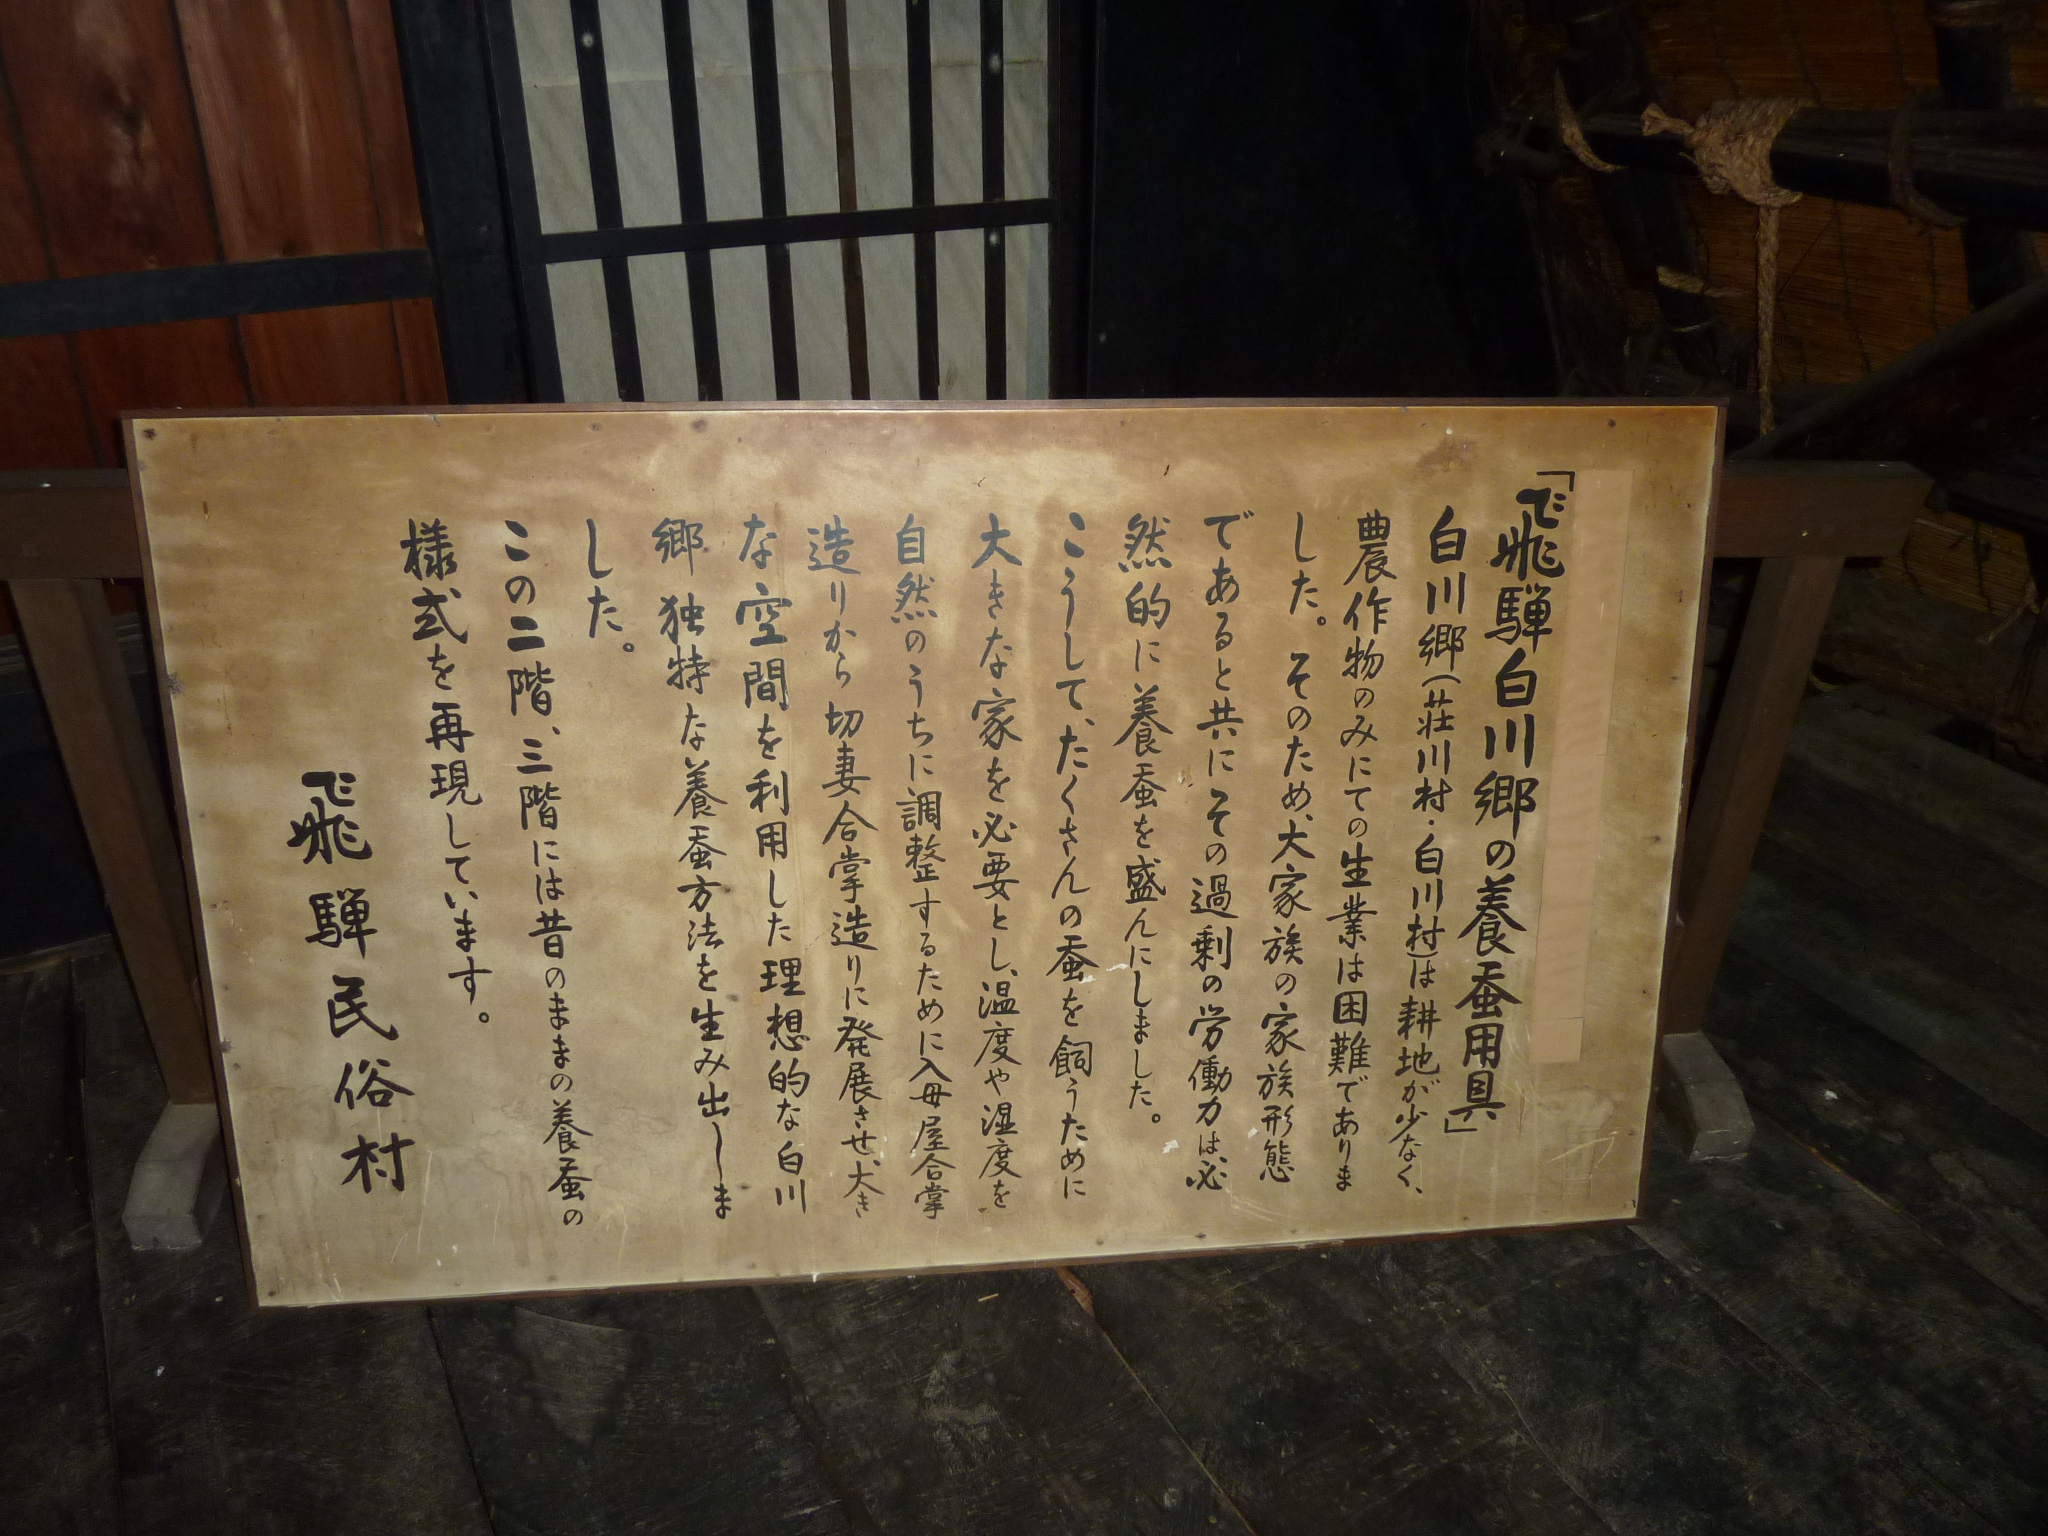 「飛騨白川郷の養蚕用具」
白川郷(荘川村・白川村)は耕地が少なく、
農作物のみにての生業は困難でありま
した。そのため、大家族の家族形態
であると共にその過剰の労働力は、必
然的に養蚕を盛んにしました。
こうして、たくさんの蚕を飼うために
大きな家を必要とし、温度や湿度を
自然のうちに調整するために入母屋合掌
造りから切妻合掌造りに発展させ、大き
な空間を利用した理想的な白川
郷独特な養蚕方法を生み出しま
した。
この二階、三階には昔のままの養蚕の
様式を再現しています。
飛騨民俗村